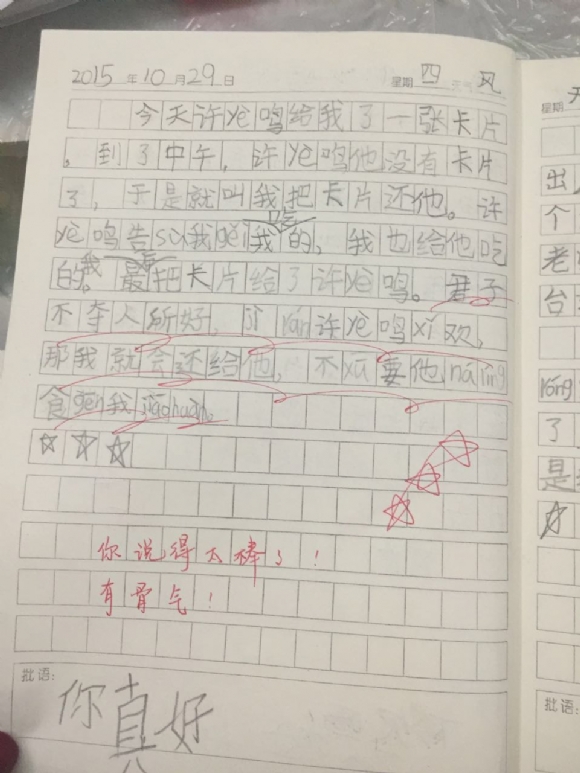 2015年10月29日 星期 四 天气 风
今天许yè鸣给我了一张卡片
。到了中午，许yè鸣他没有卡片
了，于是就叫我把卡片还他。许
吃
yè鸣告sù我gěi我的，我也给他吃
的。我最把卡片给了许yè鸣。君子
不夺人所好，jì rán许yè鸣xǐ欢，
那我就会还给他，不xū要他ná líng
食gēn我jiāohuàn。
你说得太棒了！
有骨气！
批语：
你真好
星期 天
出
个
老
台
róng
了
是
批语：